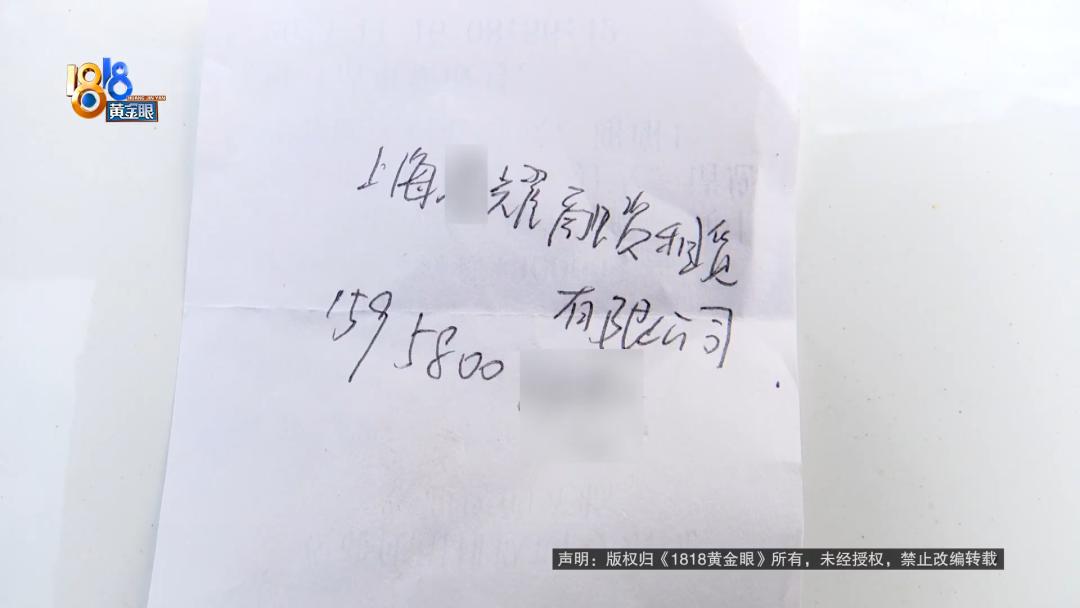 1818
HUANG JIN YAN
黄金眼
上海 耀融资租赁
有限公司
159 5800
声明：版权归《1818黄金眼》所有，未经授权，禁止改编转载